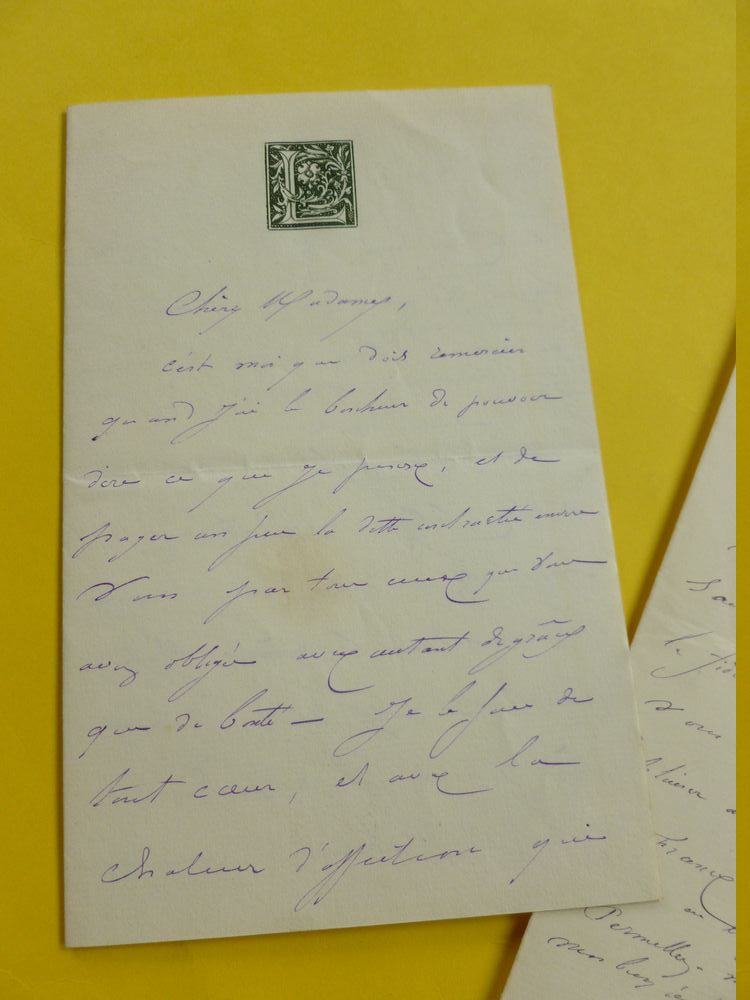 L
Chère Madame,
c'est moi qui dois remercier
quand j'ai le bonheur de pouvoir
dire ce que je pense, et de
payer un peu la dette contractée envers
Vous par tous ceux que Vous
avez obligés avec autant de grâce
que de bonté — Je le fais de
tout cœur, et avec la
chaleur d'affection qui
Vous
France
Permettez